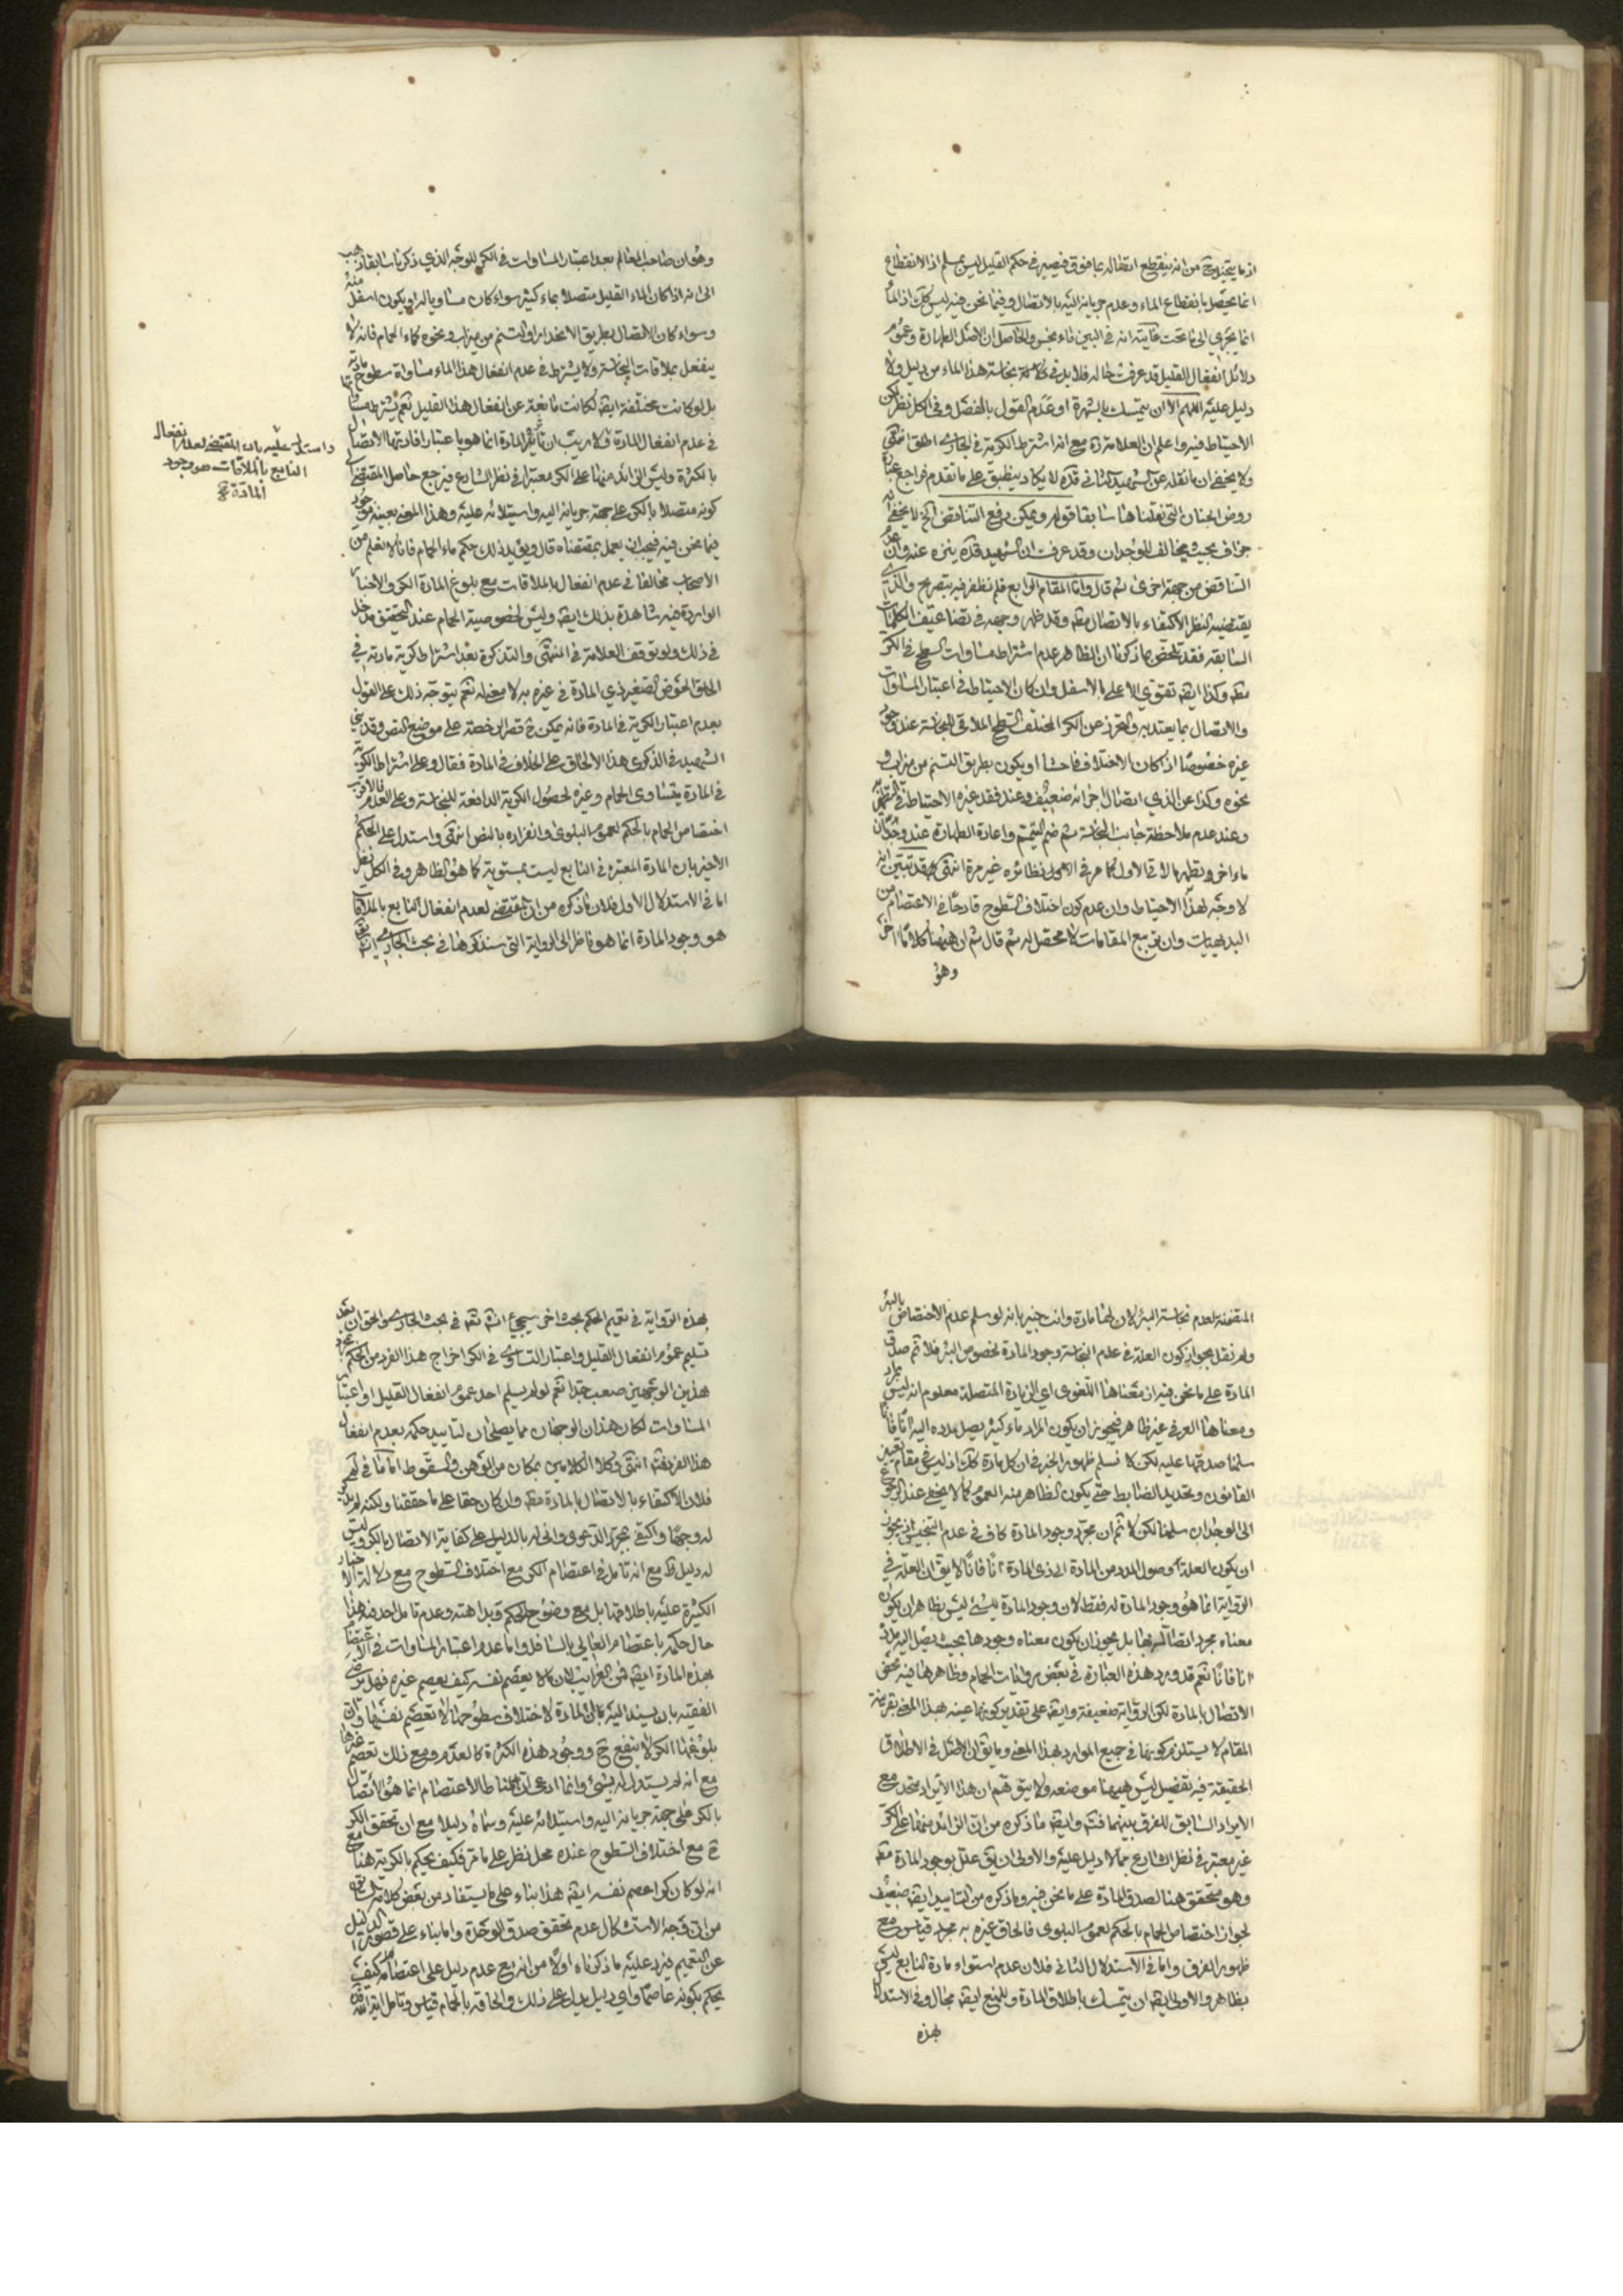 اذ ما يتخيل ح من انه ينقطع اتصاله عما فوق فيصير في حكم القليل ليس بمسلم اذ الانقطاع
انما يحصل بانقطاع الماء وعدم جريانه اليه بالاتصال وفيما نحن فيه ليس كك اذ الماء
انما يجري الى ما تحت غايته انه في البين ماء نجس والحاصل ان الاصل الطهارة وعموم
دلائل انفعال القليل قد عرفت حاله فلا بد في نجاسة هذا الماء من دليل ولا
دليل عليه اللهم الا ان يتمسك بالشهرة او عدم القول بالفصل وفي الكل نظر لكن
الاحتياط فيه واعلم ان العلامة ره مع انه اشترط الكرية في الجاري اطلق انتهى
ولا يخفى ان ما نقله عن الشهيد الثاني قده لا يكاد ينطبق على ما تقدم فراجع عبارة
روض الجنان التي نقلناها سابقا قوله ويمكن رفع التناقض الخ لا يخفى انه
جزاف بحيث يخالف الوجدان وقد عرفت ان الشهيد قده ينزه عنه وان
التناقض من جهة اخرى ثم قال واما المقام الرابع فلم نظفر فيه بتصريح والذي
يقتضيه النظر الاكتفاء بالاتصال مط وقد ظهر وجهه في تضاعيف الكلمات
السابقه فقد تلخص مما ذكرنا ان الظاهر عدم اشتراط مساوات السطح في الكر
مط وكذا ايضا تقوي الاعلى بالاسفل وان كان الاحتياط في اعتبار المساوات
والاتصال بما يعتد به والتحرز عن الكر المختلف السطح الملاقي للنجاسة عند وجود
غيره خصوصا اذا كان الاختلاف فاحشا او يكون بطريق التسنم من ميزاب و
نحوه وكذا عن الذي اتصال اجزائه ضعيف وعند فقد غيره الاحتياط في التطهر
وعند عدم ملاحظة جانب النجاسة ثم ضم التيمم واعادة الطهارة عند وجدان
ماء اخر وتطهير ما لاقى الاول كما مر في نظائره غير مرة انتهى وقد تبين انه
لا وجه لهذا الاحتياط وان عدم كون اختلاف السطوح قادحا في الاعتصام من
البديهيات وان تربيع المقامات لا محصل له ثم قال ثم ان ههنا كلاما اخر
وهو
وهو ان صاحب المعالم بعد اعتبار المساوات في الكر للوجه الذي ذكرنا سابقا ذهب
الى انه اذا كان الماء القليل متصلا بماء كثير سواء كان مساويا له او يكون اسفل منه
وسواء كان الاتصال بطريق الانحدار او التسنم من ميزاب ونحوه كماء الحمام فانه لا
ينفعل بملاقات النجاسة ولا يشترط في عدم انفعال هذا الماء مساواة سطوح مادته
بل لو كانت مختلفة ايضا لكانت مانعة عن انفعال هذا القليل نعم يشترط
في عدم انفعال المادة ولا ريب ان تاثير المادة انما هو باعتبار افادتها الاتصال
بالكثرة وليس الزائد منها على الكر معتبرا في نظر الشارع فيرجع حاصل المقتضي الى
كونه متصلا بالكر على جهة جريانه اليه واستيلائه عليه وهذا المعنى بعينه موجود
فيما نحن فيه فيجب ان يعمل بمقتضاه قال ويؤيد ذلك حكم ماء الحمام فانا لا نعلم من
الاصحاب مخالفا في عدم انفعاله بالملاقات مع بلوغ المادة الكر والاخبار
الواردة فيه شاهدة بذلك ايضا وليس لخصوصية الحمام عند التحقيق مدخل
في ذلك ولو توقف العلامة في المنتهى والتذكرة بعد اشتراط كرية مادته في
الحاق الحوض الصغير ذي المادة في غيره به لا معنى له نعم يتوجه ذلك على القول
بعدم اعتبار الكرية في المادة فانه يمكن ح قصر الرخصة على موضع النص وقد بنى
الشهيد في الذكرى هذا الالحاق على الخلاف في المادة فقال وعلى اشتراط الكرية
في المادة يتساوى الحمام وغيره لحصول الكرية الدافعة للنجاسة وعلى العدم فالاقرب
اختصاص الحمام بالحكم لعموم البلوى وانفراده بالنص انتهى واستدل على الحكم
الاخير بان المادة المعتبرة في النابع ليست بمستوية كما هو الظاهر وفي الكل نظر
اما في الاستدلال الاول فلان ما ذكره من ان المقتضي لعدم انفعال النابع بالملاقات
هو وجود المادة انما هو ناظر الى الرواية التي سنذكرها في بحث الجاري
واستدل عليه بان المقتضي لعدم انفعال
النابع بالملاقات هو وجود
المادة صح
المتضمنة لعدم نجاسة البئر لان لها مادة وانت خبير بانه لو سلم عدم الاختصاص بالبئر
ولم نقل بجواز كون العلة في عدم النجاسة وجود المادة لخصوص البئر فلا ثم صدق
المادة على ما نحن فيه اذ معناها اللغوي اي الزيادة المتصلة معلوم انه ليس بمراد
ومعناها العرفي غير ظاهر فيجوز ان يكون المراد ماء كثير يصل مدده اليه انا فانا
سلمنا صدقها عليه لكن لا نسلم ظهور الخبر في ان كل مادة كك اذ ليس في مقام تعيين
القانون وتحديد الضابط حتى يكون الظاهر منه العموم كما لا يخفى عند الرجوع
الى الوجدان سلمنا لكن لا ثم ان مجرد وجود المادة كاف في عدم التنجيس اذ يجوز
ان يكون العلة وصول المدد من المادة الى ذي المادة انا فانا لا يق ان العلة في
الرواية انما هو وجود المادة له فقط لان وجود المادة لشيء ليس بظاهر ان يكون
معناه مجرد اتصاله بها بل يجوز ان يكون معناه وجودها بحيث يصل اليه مدد
انا فانا نعم قد ورد هذه العبارة في بعض روايات الحمام وظاهرها فيه محض
الاتصال بالمادة لكن الرواية ضعيفة وايضا على تقدير كونها عينه بهذا المعنى بقرينة
المقام لا يستلزم كونها في جميع الموارد بهذا المعنى وما يق ان الاصل في الاطلاق
الحقيقة فيه تفصيل ليس ههنا موضعه ولا يتوهم ان هذا الايراد متحد مع
الايراد السابق للفرق بينهما فتد وايضا ما ذكره من ان الزائد منها على الكر
غير معتبر في نظر الشارع مما لا دليل عليه والاولى ان يق علل بوجود المادة مط
وهو متحقق هنا لصدق المادة على ما نحن فيه وما ذكره من التاييد ايضا ضعيف
لجواز اختصاص الحمام بالحكم لعموم البلوى فالحاق غيره به مجرد قياس مع
ظهور الفرق واما في الاستدلال الثاني فلان عدم استواء مادة النابع ليس
بظاهر والاولى ايضا ان يتمسك باطلاق المادة وللمنع ايضا مجال وفي الاستدلال
بهذه
بهذه الرواية في تعميم الحكم بحث اخر سيجيء انشاء الله تعالى في بحث الجاري والحق ان بعد
تسليم عموم انفعال القليل واعتبار التساوي في الكر اخراج هذا الفرد من الحكم بمجرد
هذين الوجهين صعب جدا نعم لو لم يسلم احد عموم انفعال القليل او اعتبار
المساوات لكان هذان الوجهان مما يصلحان لتاييد حكمه بعدم انفعال
هذا الفرد فتد انتهى وكلا الكلامين بمكان من الوهن والسقوط اما ما في
فلان الاكتفاء بالاتصال بالمادة مط وان كان حقا على ما حققنا ولكنه لم يذكر
له وجها واكتفى بمجرد الدعوى وانى له بالدليل على كفاية الاتصال بالكر وليس
له دليل مع انه تامل في اعتصام الكر مع اختلاف السطوح مع دلالة الاخبار
الكثيرة عليه باطلاقها بل مع وضوح الحكم وبداهته وعدم تامل احد فيه هذا
حال حكمه باعتصام العالي بالسافل واما عدم اعتبار المساوات في الاعتصام
بهذه المادة ايضا فمن الغرايب لان ما لا يعصم نفسه كيف يعصم غيره فهل يرضى
الفقيه بان يسند اليه بان المادة لاختلاف سطوحها لا تعصم نفسها وان
بلوغها الكر لا ينفع ح ووجود هذه الكثرة كالعدم ومع ذلك تعصم غيرها
مع انه لم يستدل له بشيء وانما ادعى ان مناط الاعتصام انما هو الاتصال
بالكر على جهة جريانه اليه واستيلائه عليه وسماه دليلا مع ان تحقق الكر
ح مع اختلاف السطوح عنده محل نظر على ما مر فكيف يحكم بالكرية هنا مع
انه لو كان كرا اعصم نفسه ايضا هذا بناء على ما يستفاد من بعض كلامه السابق
من ان وجه الاستشكال عدم تحقق صدق الوحدة واما بناء على قصور الدليل
عن التعميم فيرد عليه ما ذكرناه اولا من انه مع عدم دليل على اعتصامه كيف
يحكم بكونه عاصما واي دليل يدل على ذلك والحاقه بالحمام قياس